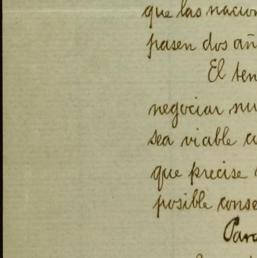 que las nacion
pasen dos añ
El ten
negociar nu
sea viable c
que precise
posible conse
Para